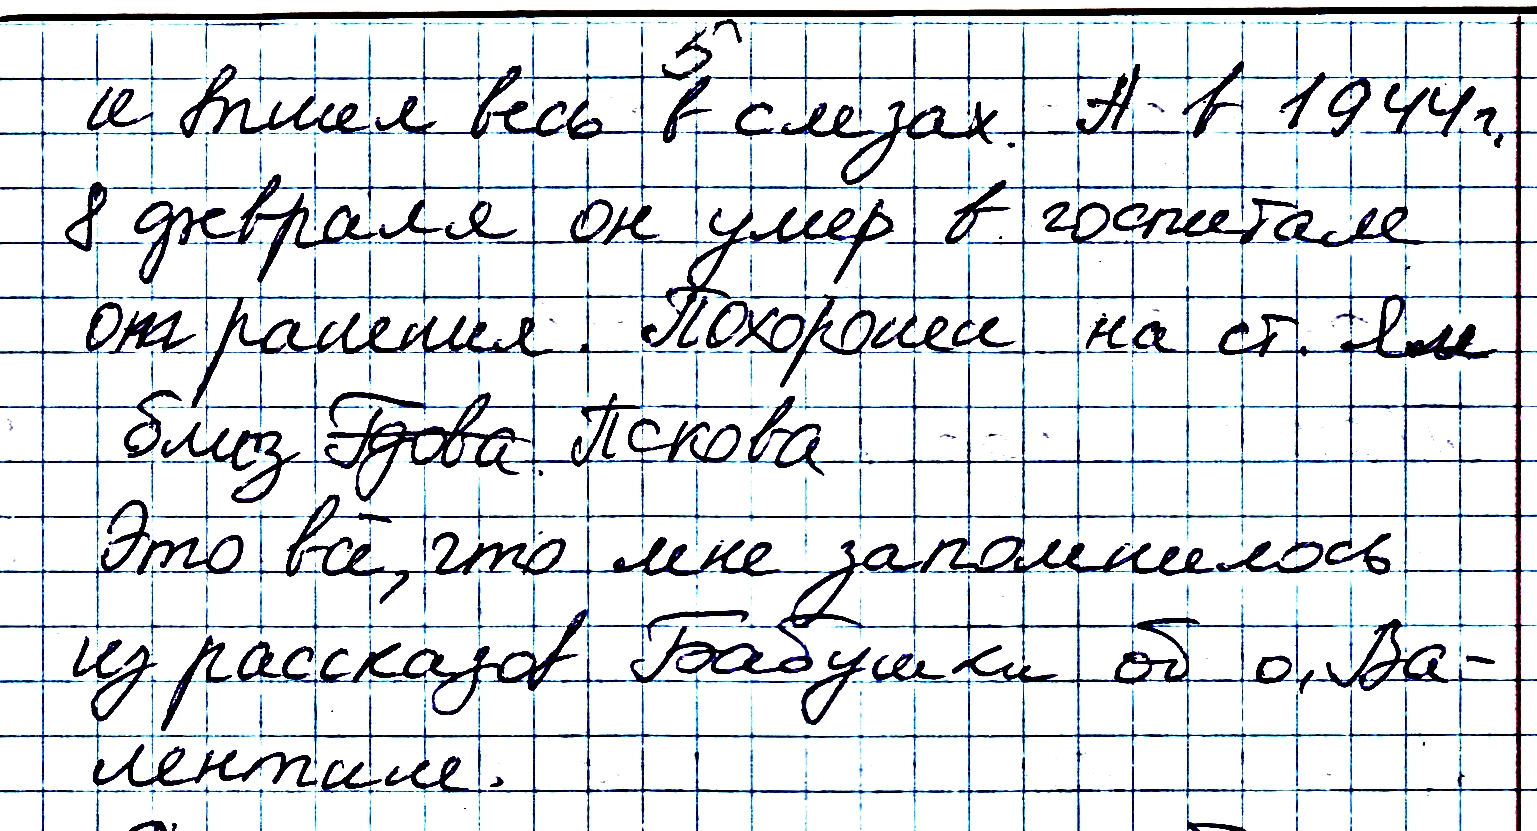 5
и вышел весь в слезах. А в 1944 г.
8 февраля он умер в госпитале
от ранения. Похоронен на ст. Ям
близ Гдова Пскова
Это всё, что мне запомнилось
из рассказов Бабушки об о. Ва-
лентине.